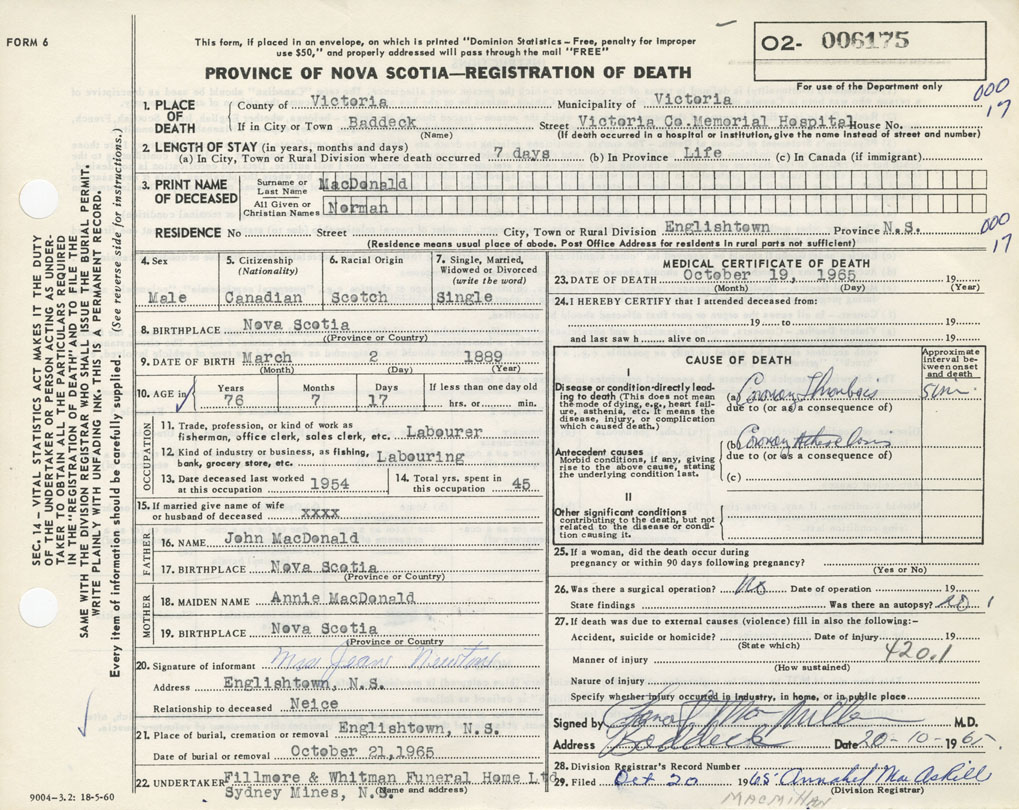 FORM 6
This form, if placed in an envelope, on which is printed "Dominion Statistics – Free, penalty for improper
use $50," and properly addressed will pass through the mail "FREE"
PROVINCE OF NOVA SCOTIA—REGISTRATION OF DEATH
O2- 006175
For use of the Department only
000
17
1. PLACE OF DEATH
County of Victoria Municipality of Victoria
If in City or Town Baddeck Street Victoria Co. Memorial Hospital House No.
(Name) (If death occurred in a hospital or institution, give the name instead of street and number)
2. LENGTH OF STAY (in years, months and days)
(a) In City, Town or Rural Division where death occurred 7 days (b) In Province Life (c) In Canada (if immigrant)
3. PRINT NAME OF DECEASED
Surname or Last Name MacDonald
All Given or Christian Names Norman
RESIDENCE No Street City, Town or Rural Division Englishtown Province N.S.
(Residence means usual place of abode. Post Office Address for residents in rural parts not sufficient)
000
17
4. Sex
Male
5. Citizenship
(Nationality)
Canadian
6. Racial Origin
Scotch
7. Single, Married,
Widowed or Divorced
(write the word)
Single
8. BIRTHPLACE Nova Scotia
(Province or Country)
9. DATE OF BIRTH March 2 1889
(Month) (Day) (Year)
10. AGE in
Years Months Days If less than one day old
76 7 17 hrs. or min.
OCCUPATION
11. Trade, profession, or kind of work as
fisherman, office clerk, sales clerk, etc. Labourer
12. Kind of industry or business, as fishing,
bank, grocery store, etc. Labouring
13. Date deceased last worked
at this occupation 1954
14. Total yrs. spent in
this occupation 45
15. If married give name of wife
or husband of deceased xxxx
FATHER
16. NAME John MacDonald
17. BIRTHPLACE Nova Scotia
(Province or Country)
MOTHER
18. MAIDEN NAME Annie MacDonald
19. BIRTHPLACE Nova Scotia
(Province or Country
20. Signature of informant Mrs Jeane Newton
Address Englishtown, N.S.
Relationship to deceased Neice
21. Place of burial, cremation or removal Englishtown, N.S.
Date of burial or removal October 21,1965
22. UNDERTAKER Fillmore & Whitman Funeral Home Ltd
Sydney Mines, N.S. (Name and address)
MEDICAL CERTIFICATE OF DEATH
23. DATE OF DEATH October 19, 1965 19
(Month) (Day) (Year)
24. I HEREBY CERTIFY that I attended deceased from:
19 to 19
and last saw h alive on 19
CAUSE OF DEATH
Approximate interval between onset and death
I
Disease or condition directly leading to death (This does not mean the mode of dying, e.g., heart failure, asthenia, etc. It means the disease, injury, or complication which caused death.)
(a) Coronary Thrombosis 5 min
due to (or as a consequence of)
Antecedent causes
Morbid conditions, if any, giving
rise to the above cause, stating
the underlying condition last.
(b) Coronary
due to (or as a consequence of)
(c)
II
Other significant conditions
contributing to the death, but not
related to the disease or condition causing it.
25. If a woman, did the death occur during
pregnancy or within 90 days following pregnancy?
(Yes or No)
26. Was there a surgical operation? No Date of operation 19
State findings Was there an autopsy? No
27. If death was due to external causes (violence) fill in also the following:–
Accident, suicide or homicide? Date of injury 19
(State which)
420.1
Manner of injury
(How sustained)
Nature of injury
Specify whether injury occurred in industry, in home, or in public place
Signed by M.D.
Address Baddeck Date 20-10-1965.
28. Division Registrar's Record Number
29. Filed Oct 20 1965 Annabel MacAskill
(Division Registrar)
MACMILLAN
SEC. 14 – VITAL STATISTICS ACT MAKES IT THE DUTY
OF THE UNDERTAKER OR PERSON ACTING AS UNDER-
TAKER TO OBTAIN ALL THE PARTICULARS REQUIRED
IN THE "REGISTRATION OF DEATH" AND TO FILE THE
SAME WITH THE DIVISION REGISTRAR WHO SHALL ISSUE THE BURIAL PERMIT.
WRITE PLAINLY WITH UNFADING INK. THIS IS A PERMANENT RECORD.
Every item of information should be carefully supplied. (See reverse side for instructions.)
9004-3.2: 18-5-60